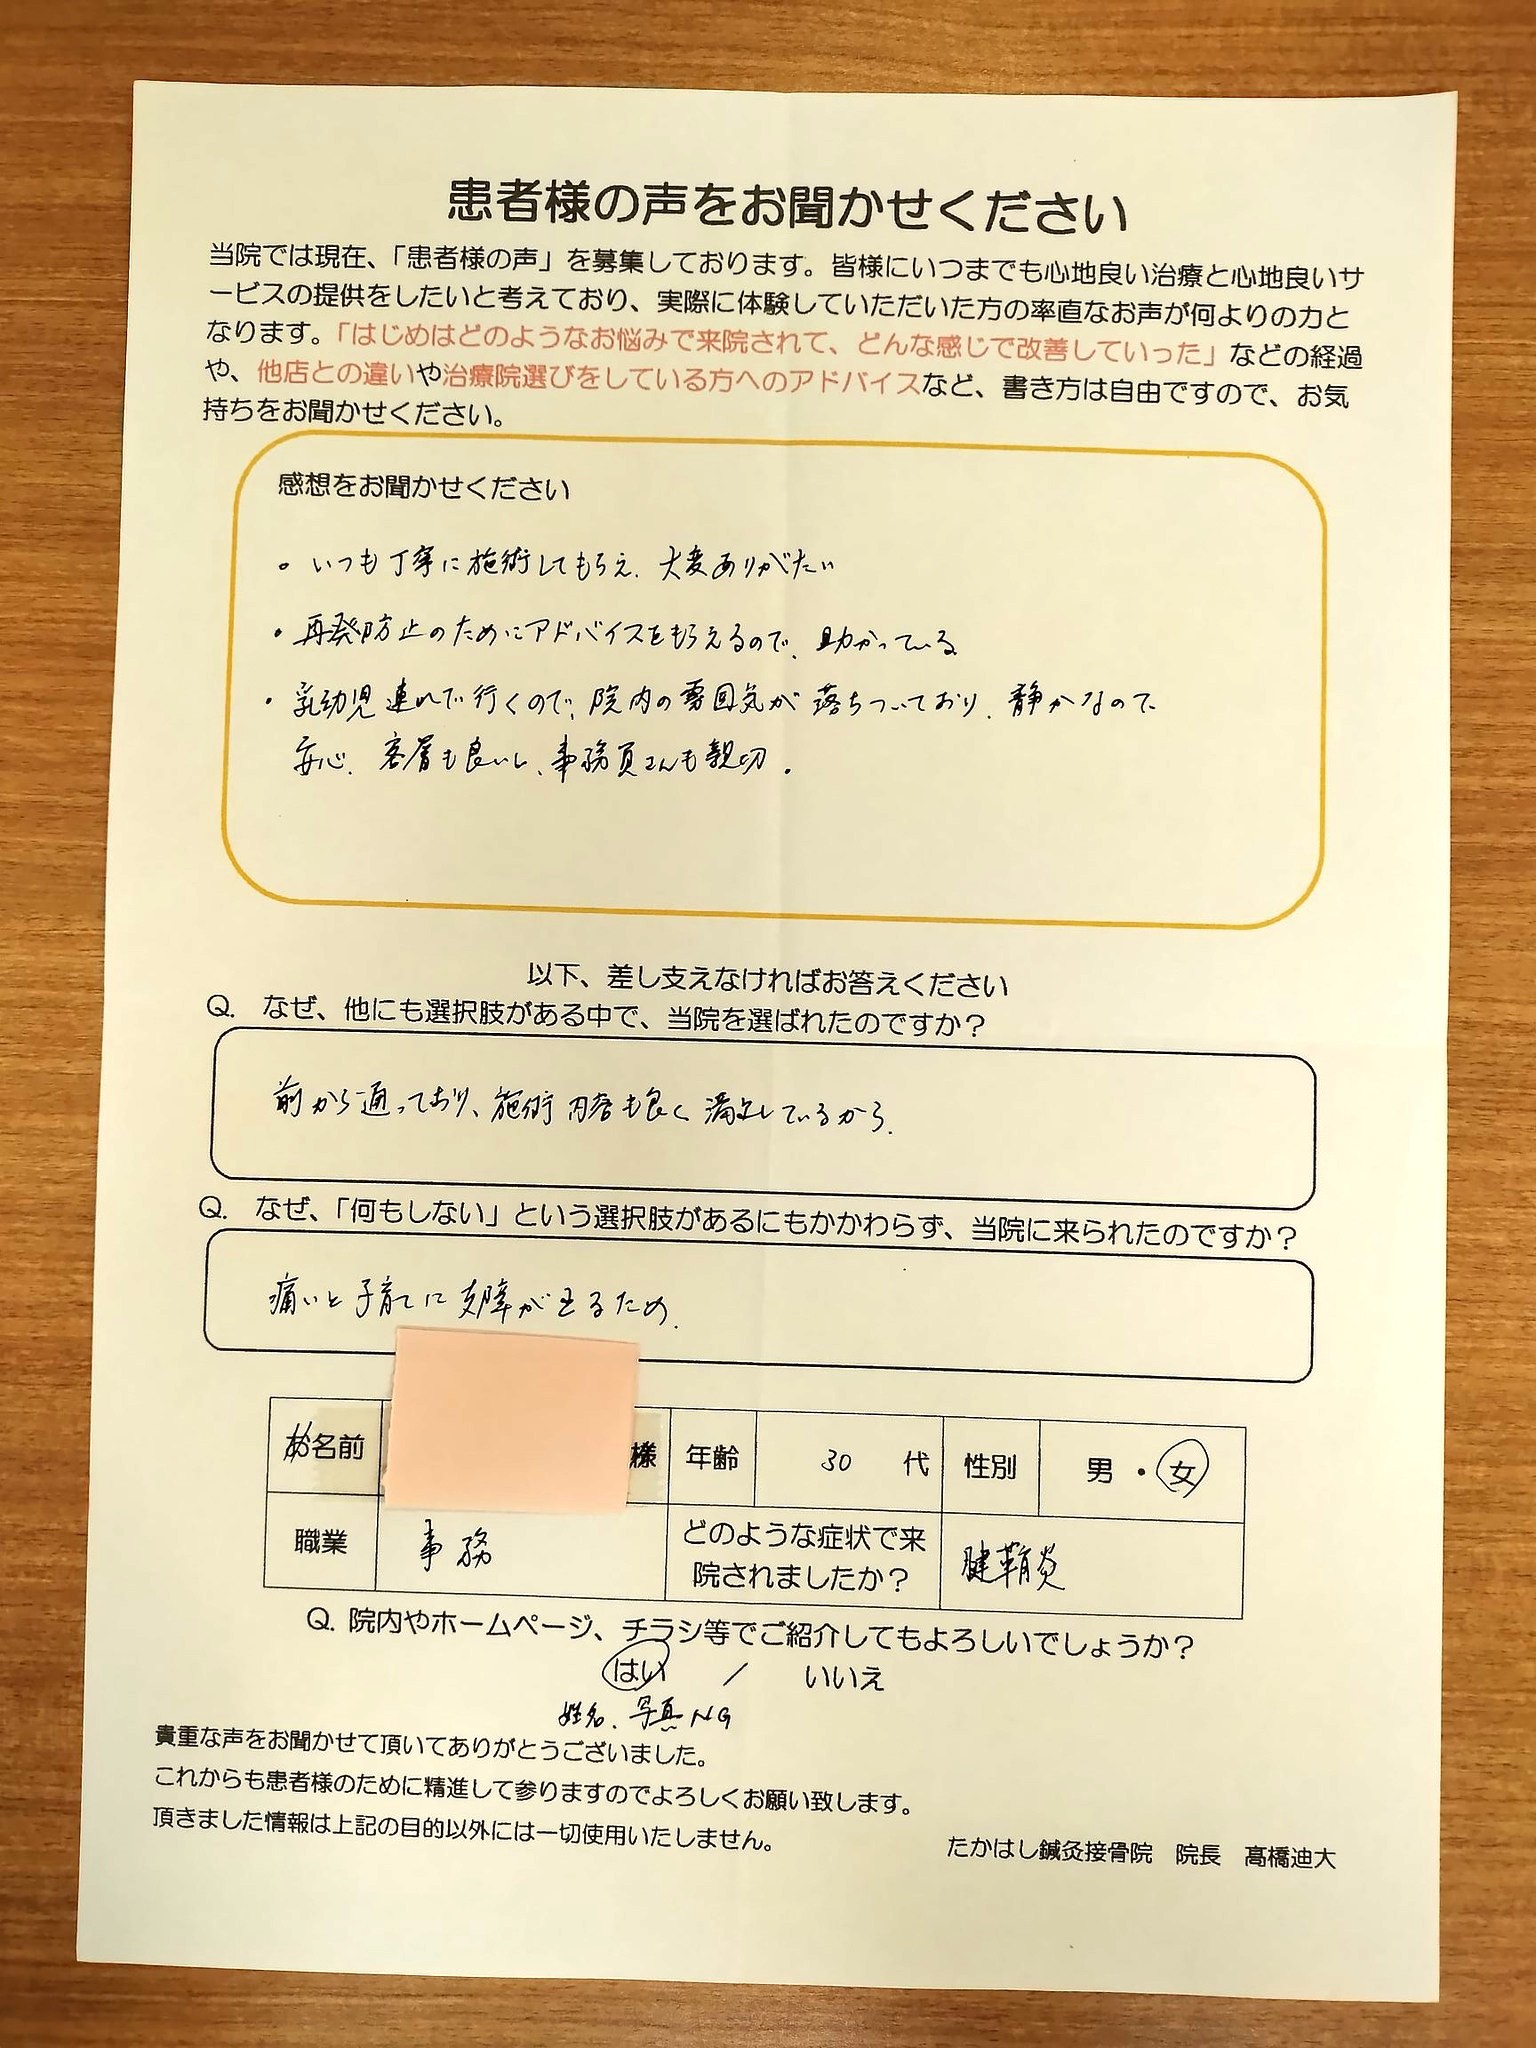 患者様の声をお聞かせください
当院では現在、「患者様の声」を募集しております。皆様にいつまでも心地良い治療と心地良いサ
ービスの提供をしたいと考えており、実際に体験していただいた方の率直なお声が何よりの力と
なります。「はじめはどのようなお悩みで来院されて、どんな感じで改善していった」などの経過
や、他店との違いや治療院選びをしている方へのアドバイスなど、書き方は自由ですので、お気
持ちをお聞かせください。
感想をお聞かせください
・いつも丁寧に施術してもらえ、大変ありがたい
・再発防止のためにアドバイスをもらえるので、助かっている
・乳幼児連れで行くので、院内の雰囲気が落ちついており、静かなので
安心。客層も良いし、事務員さんも親切。
以下、差し支えなければお答えください
Q. なぜ、他にも選択肢がある中で、当院を選ばれたのですか？
前から通っており、施術内容も良く満足しているから。
Q. なぜ、「何もしない」という選択肢があるにもかかわらず、当院に来られたのですか？
痛いと子育てに支障が出るため。
お名前 様 年齢 30 代 性別 男・女
職業 事務 どのような症状で来院されましたか？ 腱鞘炎
Q. 院内やホームページ、チラシ等でご紹介してもよろしいでしょうか？
はい / いいえ
姓名、写真NG
貴重な声をお聞かせて頂いてありがとうございました。
これからも患者様のために精進して参りますのでよろしくお願い致します。
頂きました情報は上記の目的以外には一切使用いたしません。
たかはし鍼灸接骨院 院長 髙橋迪大